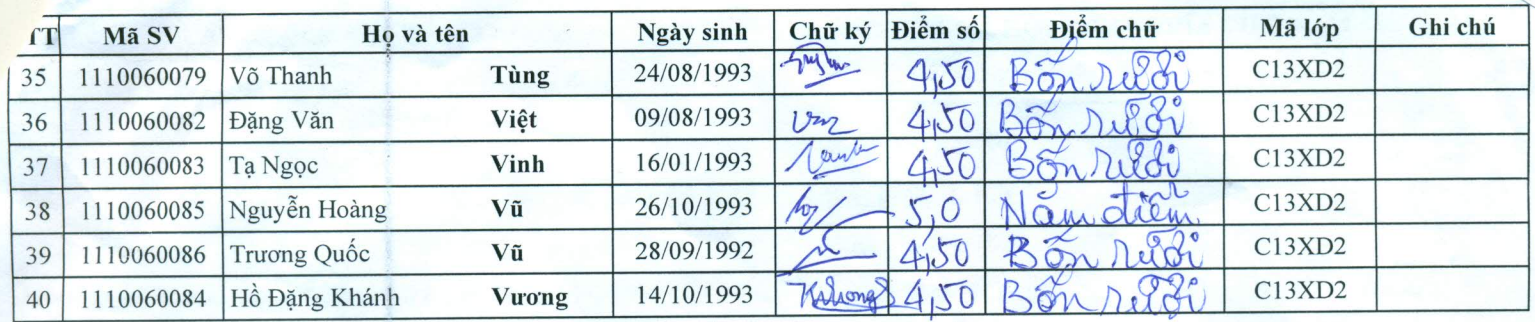 TT Mã SV Họ và tên Ngày sinh Chữ ký Điểm số Điểm chữ Mã lớp Ghi chú
35 1110060079 Võ Thanh Tùng 24/08/1993 4,50 Bốn rưỡi C13XD2
36 1110060082 Đặng Văn Việt 09/08/1993 4,50 Bốn rưỡi C13XD2
37 1110060083 Tạ Ngọc Vinh 16/01/1993 4,50 Bốn rưỡi C13XD2
38 1110060085 Nguyễn Hoàng Vũ 26/10/1993 5,0 Năm điểm C13XD2
39 1110060086 Trương Quốc Vũ 28/09/1992 4,50 Bốn rưỡi C13XD2
40 1110060084 Hồ Đặng Khánh Vương 14/10/1993 4,50 Bốn rưỡi C13XD2